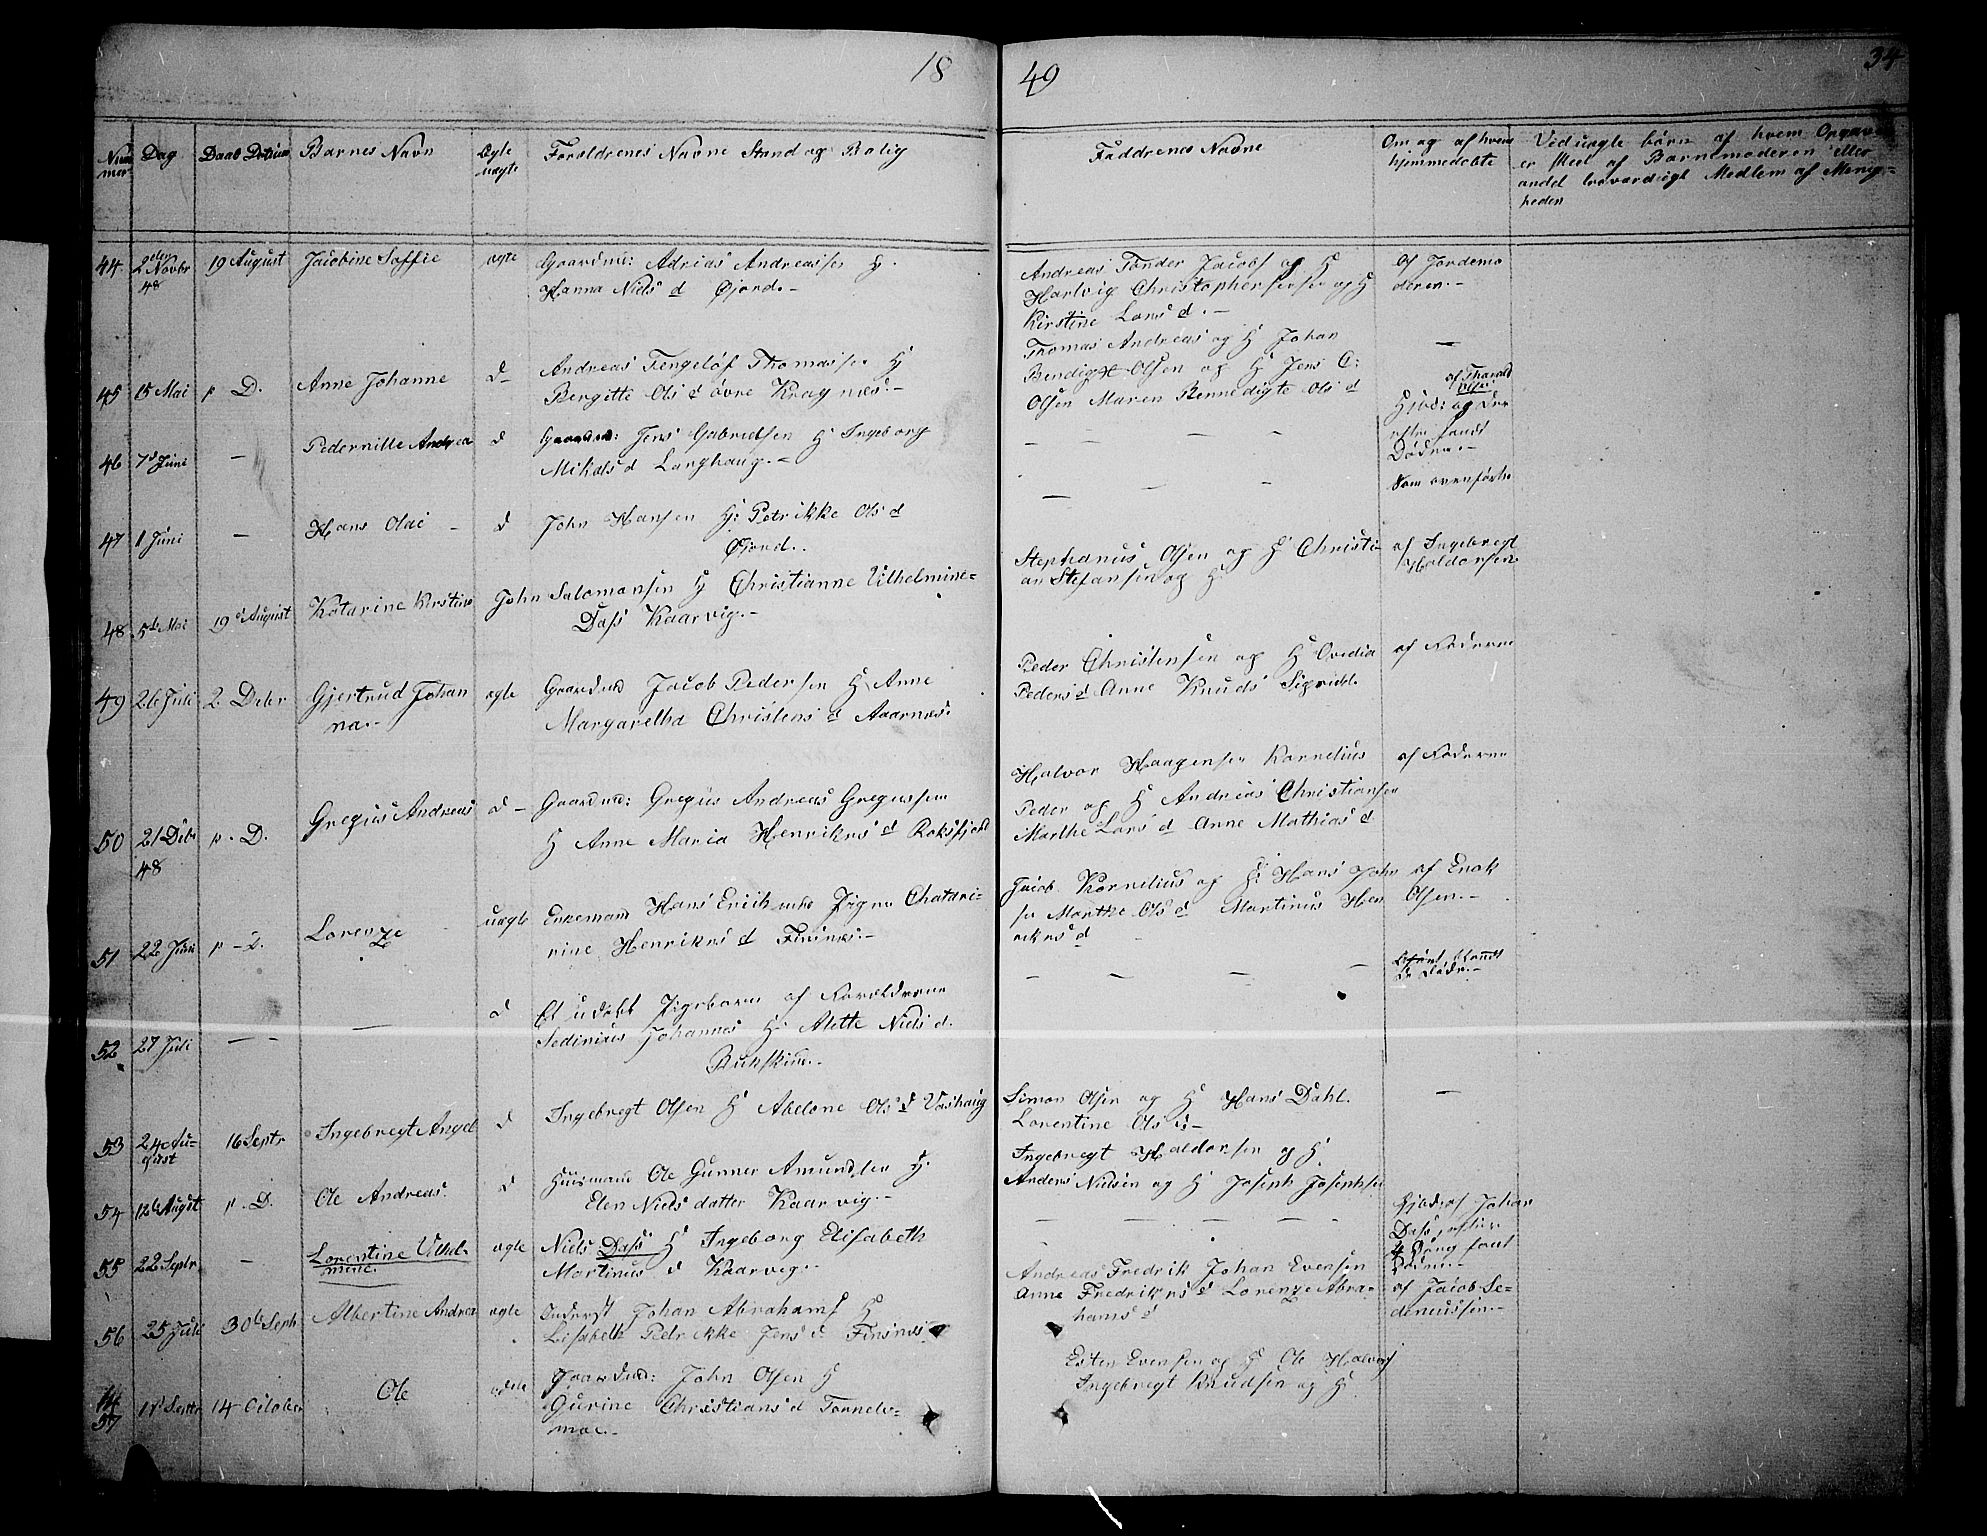 18 49
34
Num
mer
Dag
Daab Datum
Barnes Navn
Ægte
uægte
Forældrenes Navne Stand og Bolig
Faddrenes Navne
Om og af hvem
hjemmedøbte
Ved uægte børn af hvem Opgaven
er skeet af Barnemoderen eller
andet troværdigt Medlem af Menig-
heden
44
2den Novbr
48
19 August
Jacobine Soffie
ægte
Gaardm: Adrias Andreassen H.
Hanna Niels d Gjord.-
Andreas Tønder Jacobs og H
Hartvig Christophersen og H
Kirstine Lars d.-
af Jordemo
deren.-
45
15 Mai
p D.
Anne Johanne
d-
Andreas Fengeløf Thomassen H
Bergitte Ols d øvre Kragnæs.-
Thomas Andreas og H Johan
Bendigt Olsen og H Jens C:
Olsen Maren Bennedigte Ols d
—
46
7d Juni
—
Pedernille Andrea
d
Gaardm: Jens Gabrielsen H Ingeborg
Mikals d Langhaug.-
— — — —
af Tharald
Olsen
Hjbd: og der
efter fandt
Døden.-
47
1 Juni
—
Hans Olai -
d
John Hansen H: Petrikke Ols d
Gjord..
— — —
Som ovenførte
48
5te Mai
19d August
Katarine Kirstine
John Salomonsen H Christianne Vilhelmine-
Dass Kaarvig.-
Stephanus Olsen og H Christi-
an Stefansen og H
af Ingebregt
Haldorsen
49
26 Juli
2 Dito
Gjertrud Johan
na.-
ægte
Gaardmd Jacob Pedersen H Anne
Margaretha Christens d Aaarnæs.
Peder Christensen og H Ovedia
Peders d Anne Knuds Sigridd.
af Faderen
50
21 Debr
48
p. D.
Gregus Andreas
d -
Gaardmd: Gregus Andreas Gregussen
H Anne Maria Henriks d Roksfjord
Halvor Haagensen Kornelius
Peder og H Andreas Christiansen
Marthe Lars d Anne Mathias d
af Faderen
51
22 Juni
p - D.
Lorenze
uægte
Enkemand Hans Erik Pigen Chatari-
rine Henriks d Finsnæs.-
Jacob Kornelius og H: Hans John
sen Marthe Ols d Martinus Hen
riks d
af Enok
Olsen.-
52
27 Juli
— —
—
d
Et udøbt Pigebarn af Forældrene
Sedinius Johannes H: Alette Niels d.
Bukskin.-
— — — —
53
24 Au-
gust
16 Septr
Ingebregt Angel
d
Ingebregt Olsen H Abelone Ols d Vashaug
Simon Olsen og H Hans Dahl.
Lorentine Ols d-
—
54
12te August
p. D.
Ole Andreas.
d
Huusmand Ole Gunner Amundsen H.
Elen Niels datter Kaarvig.-
Ingebregt Haldorsen og H
Anders Nielsen og H Joseph Josephsen
55
22 Septr
—
Lorentine Vilhel-
mine.
ægte
Niels Dass H Ingeborg Elisabeth
Martinus d Kaarvig.-
— — — —
Hjbd af Johan
Dass, efter
fant
Døden.-
56
25 Juli
30te Septr
Albertine Andrea
ægte
Inderst Johan Abrahams H
Lisabeth Petrikke Jens d Finsnæs
Andreas Fredrik Johan Evensen
Anne Fredriks d Lorenze Abra-
hams d
af Jacob Se-
deniussen.-
57
11d Septr
14 October
Ole
ægte
Gaardmd: John Olsen H
Gurine Christians d Tonnele-
moe.-
Esten Evensen og H Ole Halvors
Ingebregt Knudsen og H